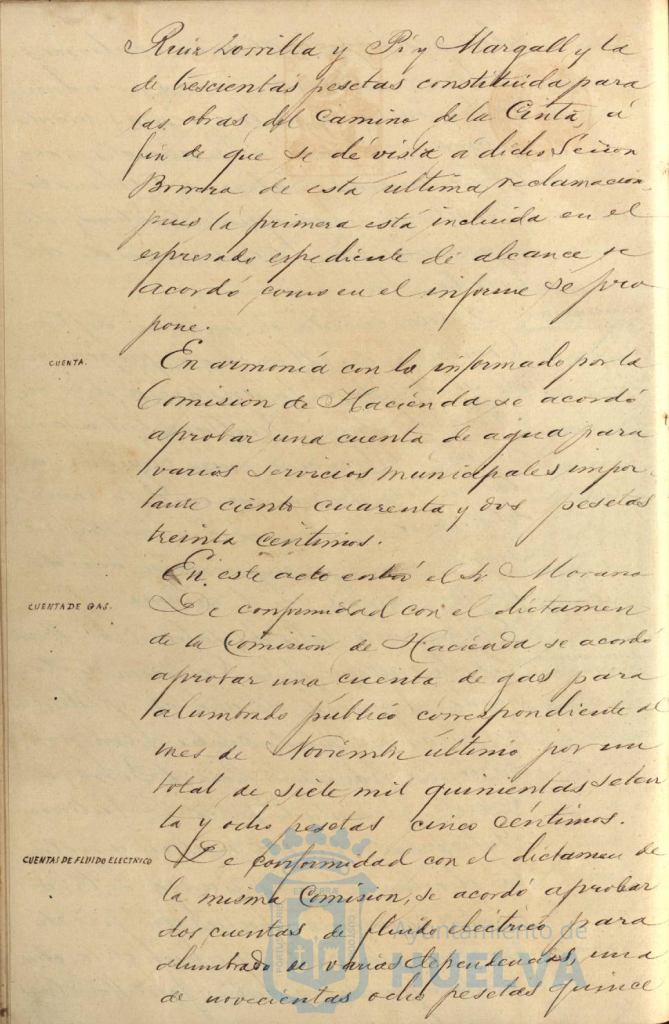 Ruiz Zorrilla y Pí y Margall y la
de trescientas pesetas constituida para
las obras del camino de la Cinta, á
fin de que se dé vista á dicho Señor
Borrero de esta última reclamacion
pues la primera está incluida en el
espresado espediente de alcance se
acordó como en el informe se pro
pone.
CUENTA.
En armonía con lo informado por la
Comision de Hacienda se acordó
aprobar una cuenta de agua para
varios servicios municipales impor-
tante ciento cuarenta y dos pesetas
treinta centimos.
En este acto entró el Sr Morano
CUENTA DE GAS.
De conformidad con el dictamen
de la Comision de Hacienda se acordó
aprobar una cuenta de gas para
alumbrado público correspondiente al
mes de Noviembre último por un
total de siete mil quinientas seten
ta y ocho pesetas cinco céntimos.
CUENTAS DE FLUIDO ELECTRICO
De conformidad con el dictamen de
la misma Comision, se acordó aprobar
dos cuentas de fluido electrico para
alumbrado de varias dependencias, una
de novecientas ocho pesetas quince
Ayuntamiento de
HUELVA